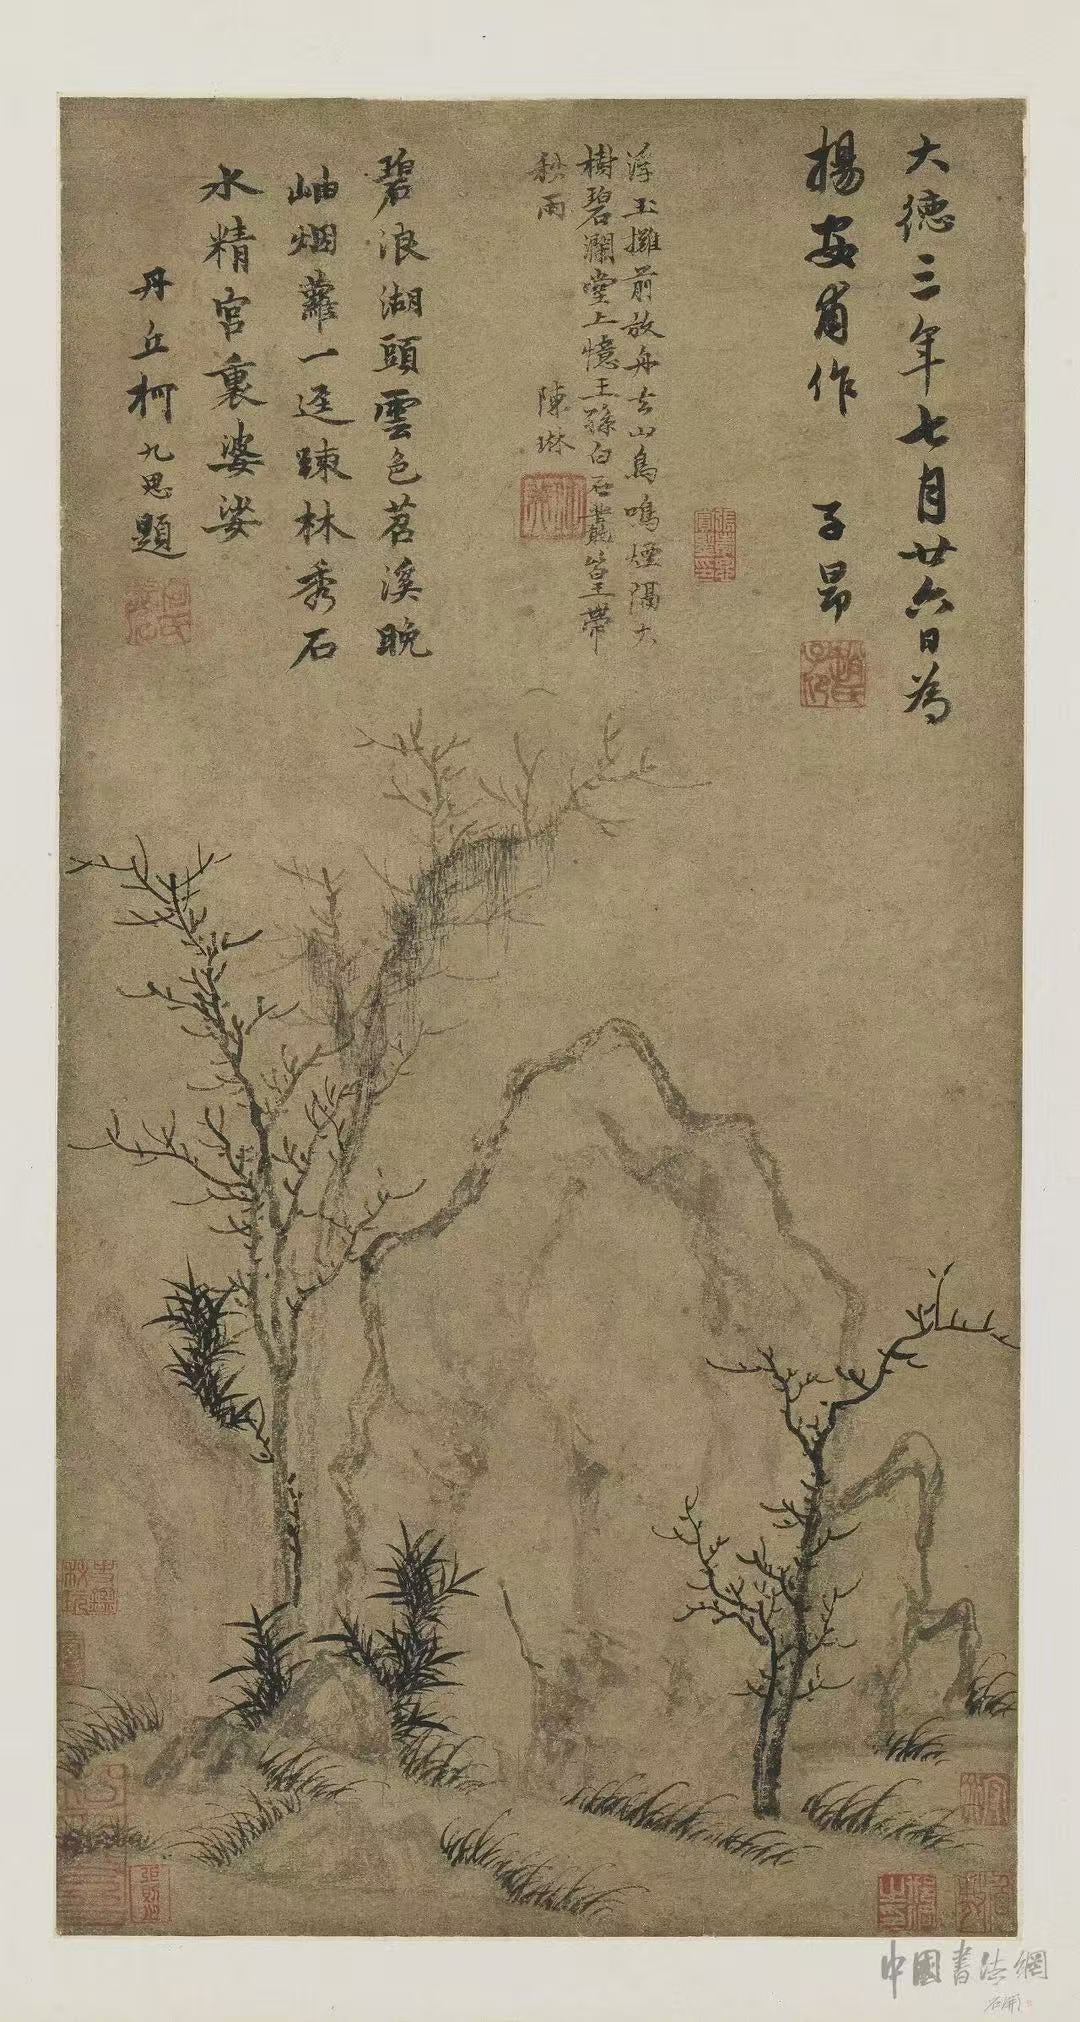 大德三年七月廿六日為
楊安甫作　子昂
浮玉攤前放舟去山鳥鳴煙隔大
樹碧瀾堂上憶王孫白石叢篁帶
秋雨　陳琳
碧浪湖頭雲色苕溪晚
岫烟蘿一逕踈林秀石
水精宮裏婆娑
丹丘柯九思題
張則之
中國書法網